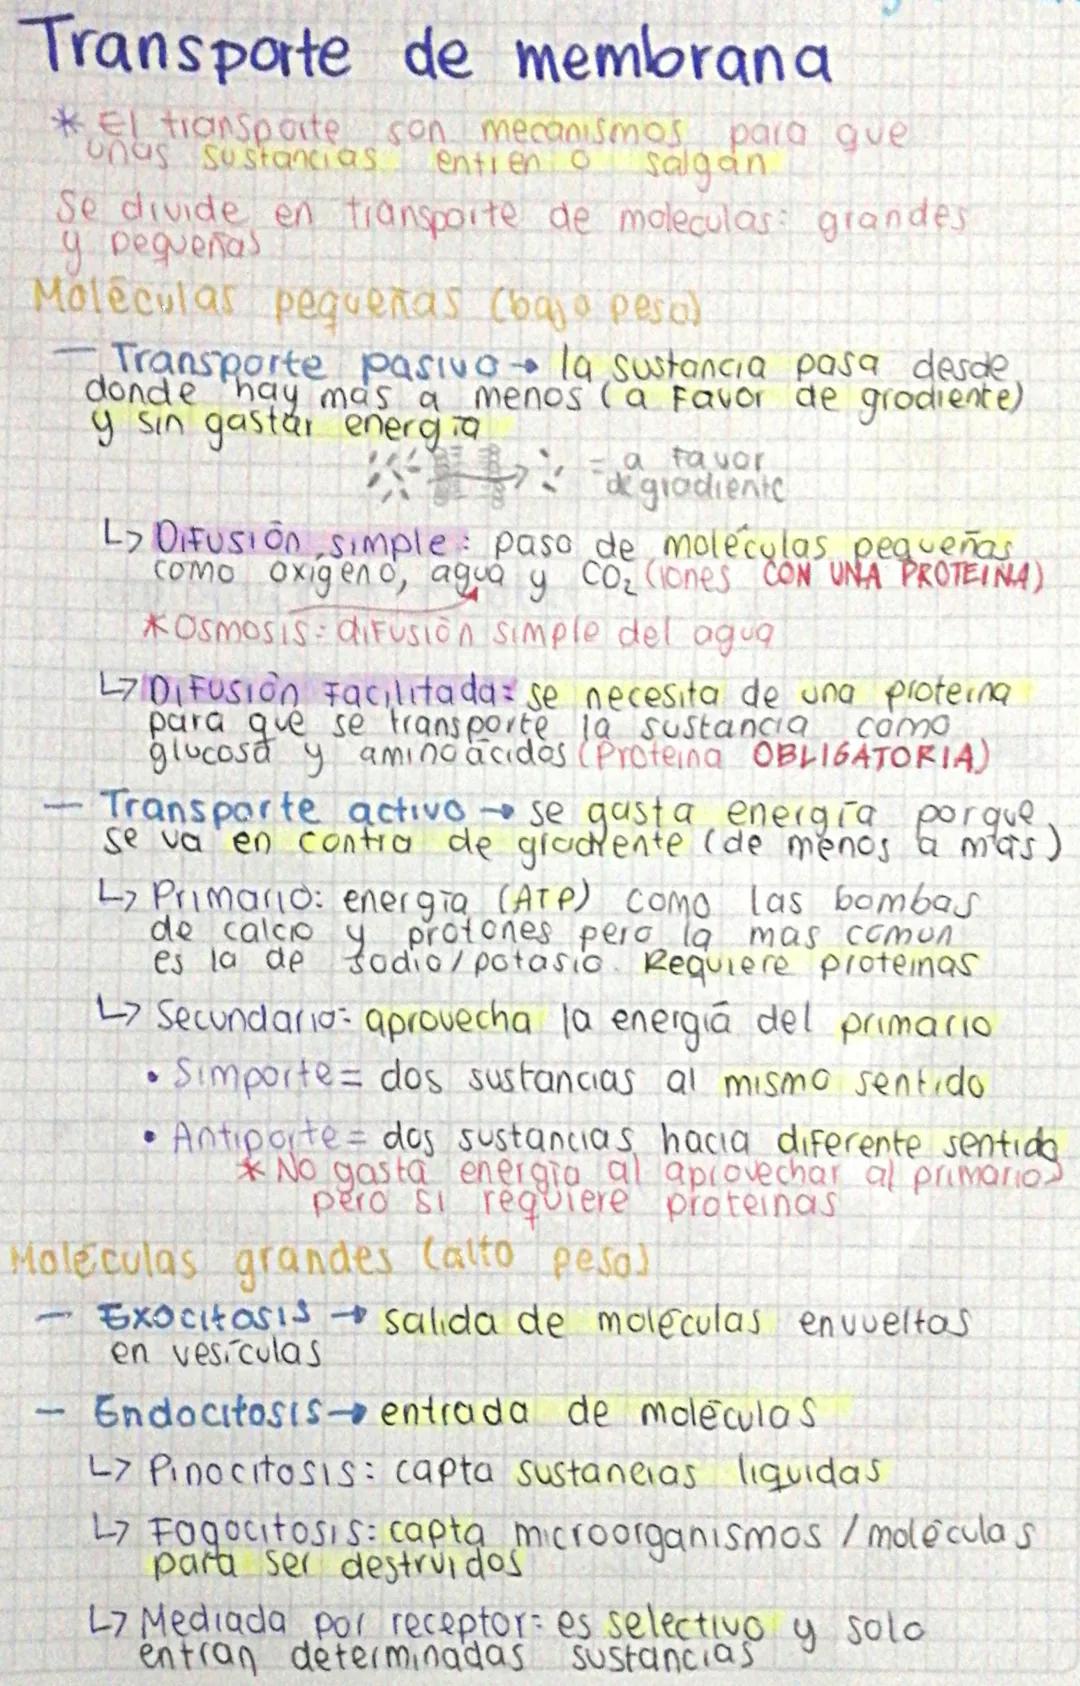 Transporte de membrana
* El transporte son mecanismos para que
unas sustancias entren o salgan
Se divide en transporte de moleculas: grandes
y pequeñas
Moléculas pequeñas (bajo peso)
— Transporte pasivo → la sustancia pasa desde
donde hay mas a menos (a favor de gradiente)
y sin gastar energía
= a favor
de gradiente
↳ Difusión simple: paso de moléculas pequeñas
como oxigeno, agua y CO₂ (iones CON UNA PROTEINA)
* Osmosis: difusión simple del agua
↳ Difusión Facilitada: se necesita de una proteina
para que se transporte la sustancia como
glucosa y aminoácidos (Proteina OBLIGATORIA)
— Transporte activo → se gasta energía porque
se va en contra de gradiente (de menos a más)
↳ Primario: energía (ATP) como las bombas
de calcio y protones pero la mas comun
es la de sodio/potasio. Requiere proteinas
↳ Secundario: aprovecha la energía del primario
• Simporte = dos sustancias al mismo sentido
• Antiporte = dos sustancias hacia diferente sentido
* No gasta energía al aprovechar al primario,
pero si requiere proteinas
Moléculas grandes (alto peso)
— Exocitosis → salida de moléculas envueltas
en vesículas
— Endocitosis → entrada de moléculas
↳ Pinocitosis: capta sustancias liquidas
↳ Fagocitosis: capta microorganismos / moléculas
para ser destruidos
↳ Mediada por receptor: es selectivo y solo
entran determinadas sustancias